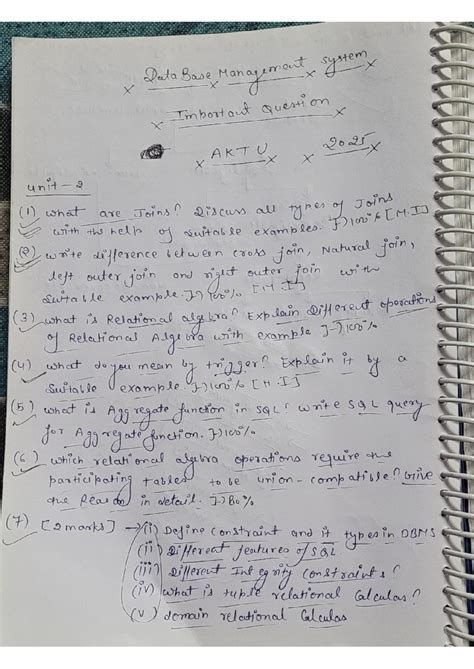 Data Base Management system
Important Question
AKTU 2025
unit - 2
(1) what are Joins? Discuss all types of Joins
with the help of suitable examples. 100% [M.I]
(2) write difference between cross join, Natural join,
left outer join and right outer join with
suitable example. 100% [M.I]
(3) what is Relational algebra? Explain Different operations
of Relational Algebra with example 100%
(4) what do you mean by trigger? Explain it by a
suitable example. 100% [M.I]
(5) what is Aggregate function in SQL? write SQL query
for Aggregate function. 100%
(6) which relational algebra operations require the
participating tables to be union-compatible? Give
the Reason in detail. 80%
(7) [2marks] → (i) Define constraint and it types in DBMS
(ii) Different features of SQL
(iii) Different Integrity constraints?
(iv) what is tuple relational Calculas?
(v) domain relational Calculas